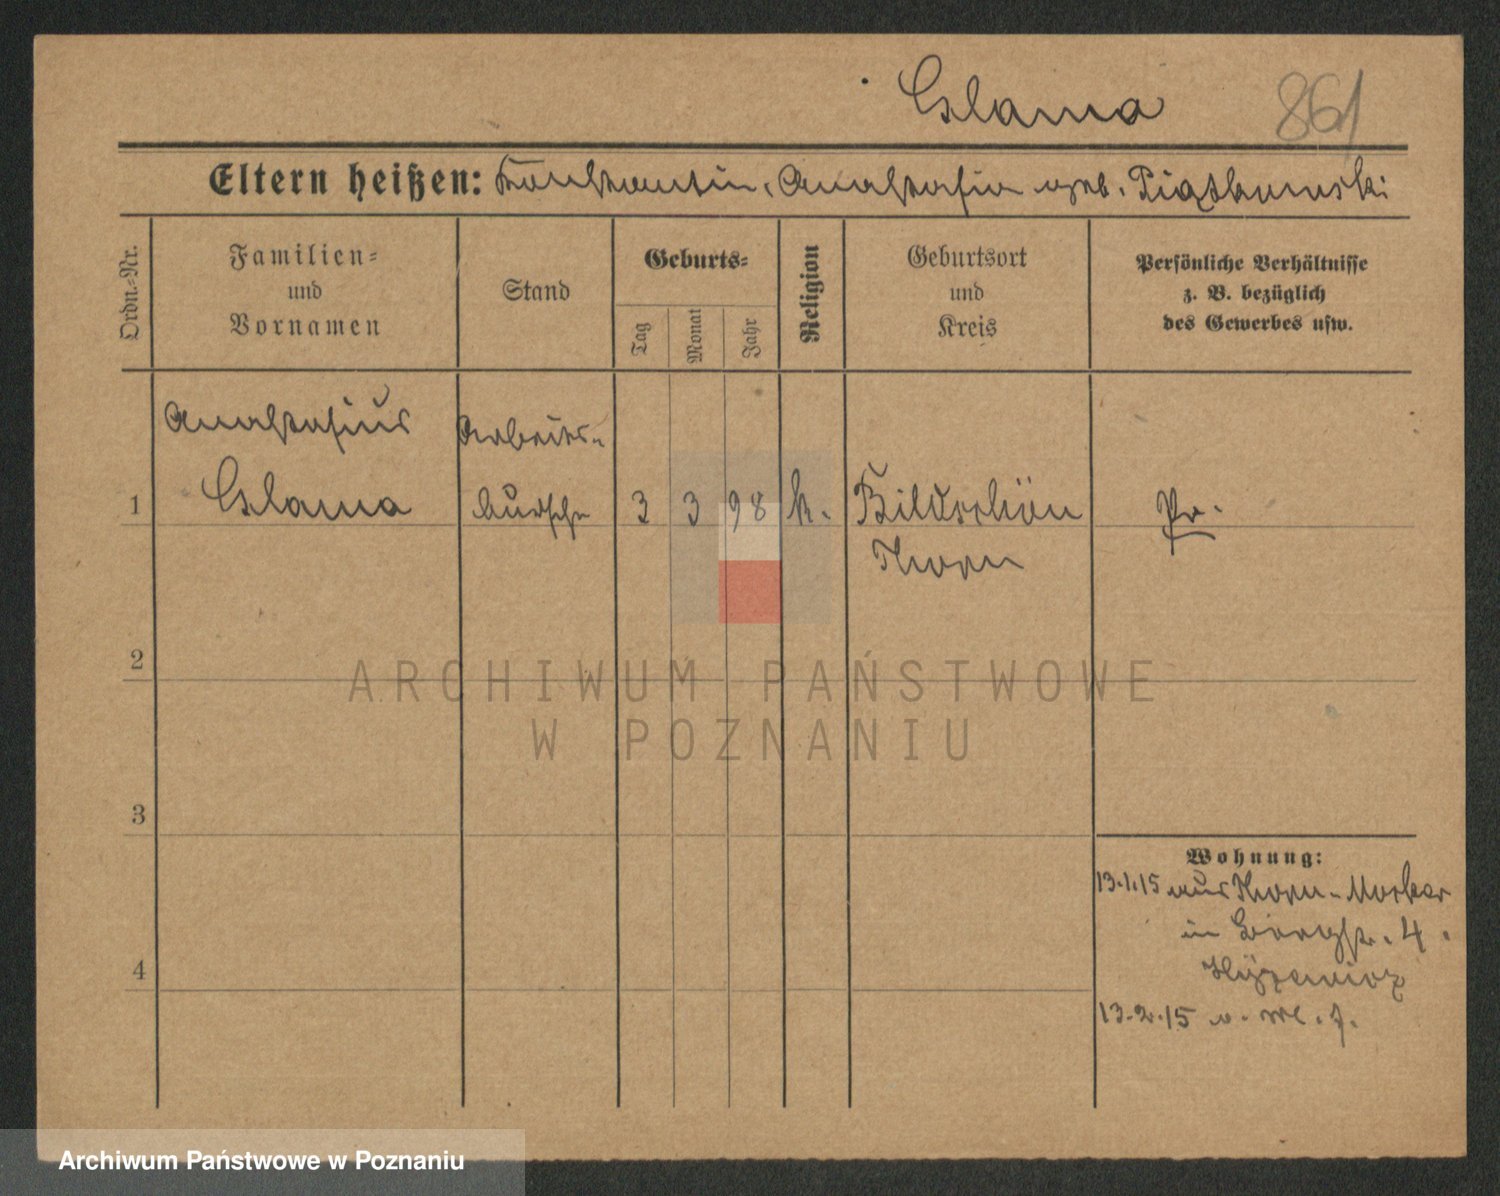 Glama
861
Eltern heißen: Konstantin, Anastasia geb. Piątkowski
Ordn.-Nr.
Familien-
und
Vornamen
Stand
Geburts-
Tag
Monat
Jahr
Religion
Geburtsort
und
Kreis
Persönliche Verhältnisse
z. B. bezüglich
des Gewerbes usw.
Anastasius
Arbeits-
1 Glama bursche 3 3 98 k. Bildschön Pr.
Thorn
2
ARCHIWUM PAŃSTWOWE
W POZNANIU
3
Wohnung:
13.1.15 aus Thorn-Mocker
in Bergstr. 4.
4
13.2.15
Archiwum Państwowe w Poznaniu